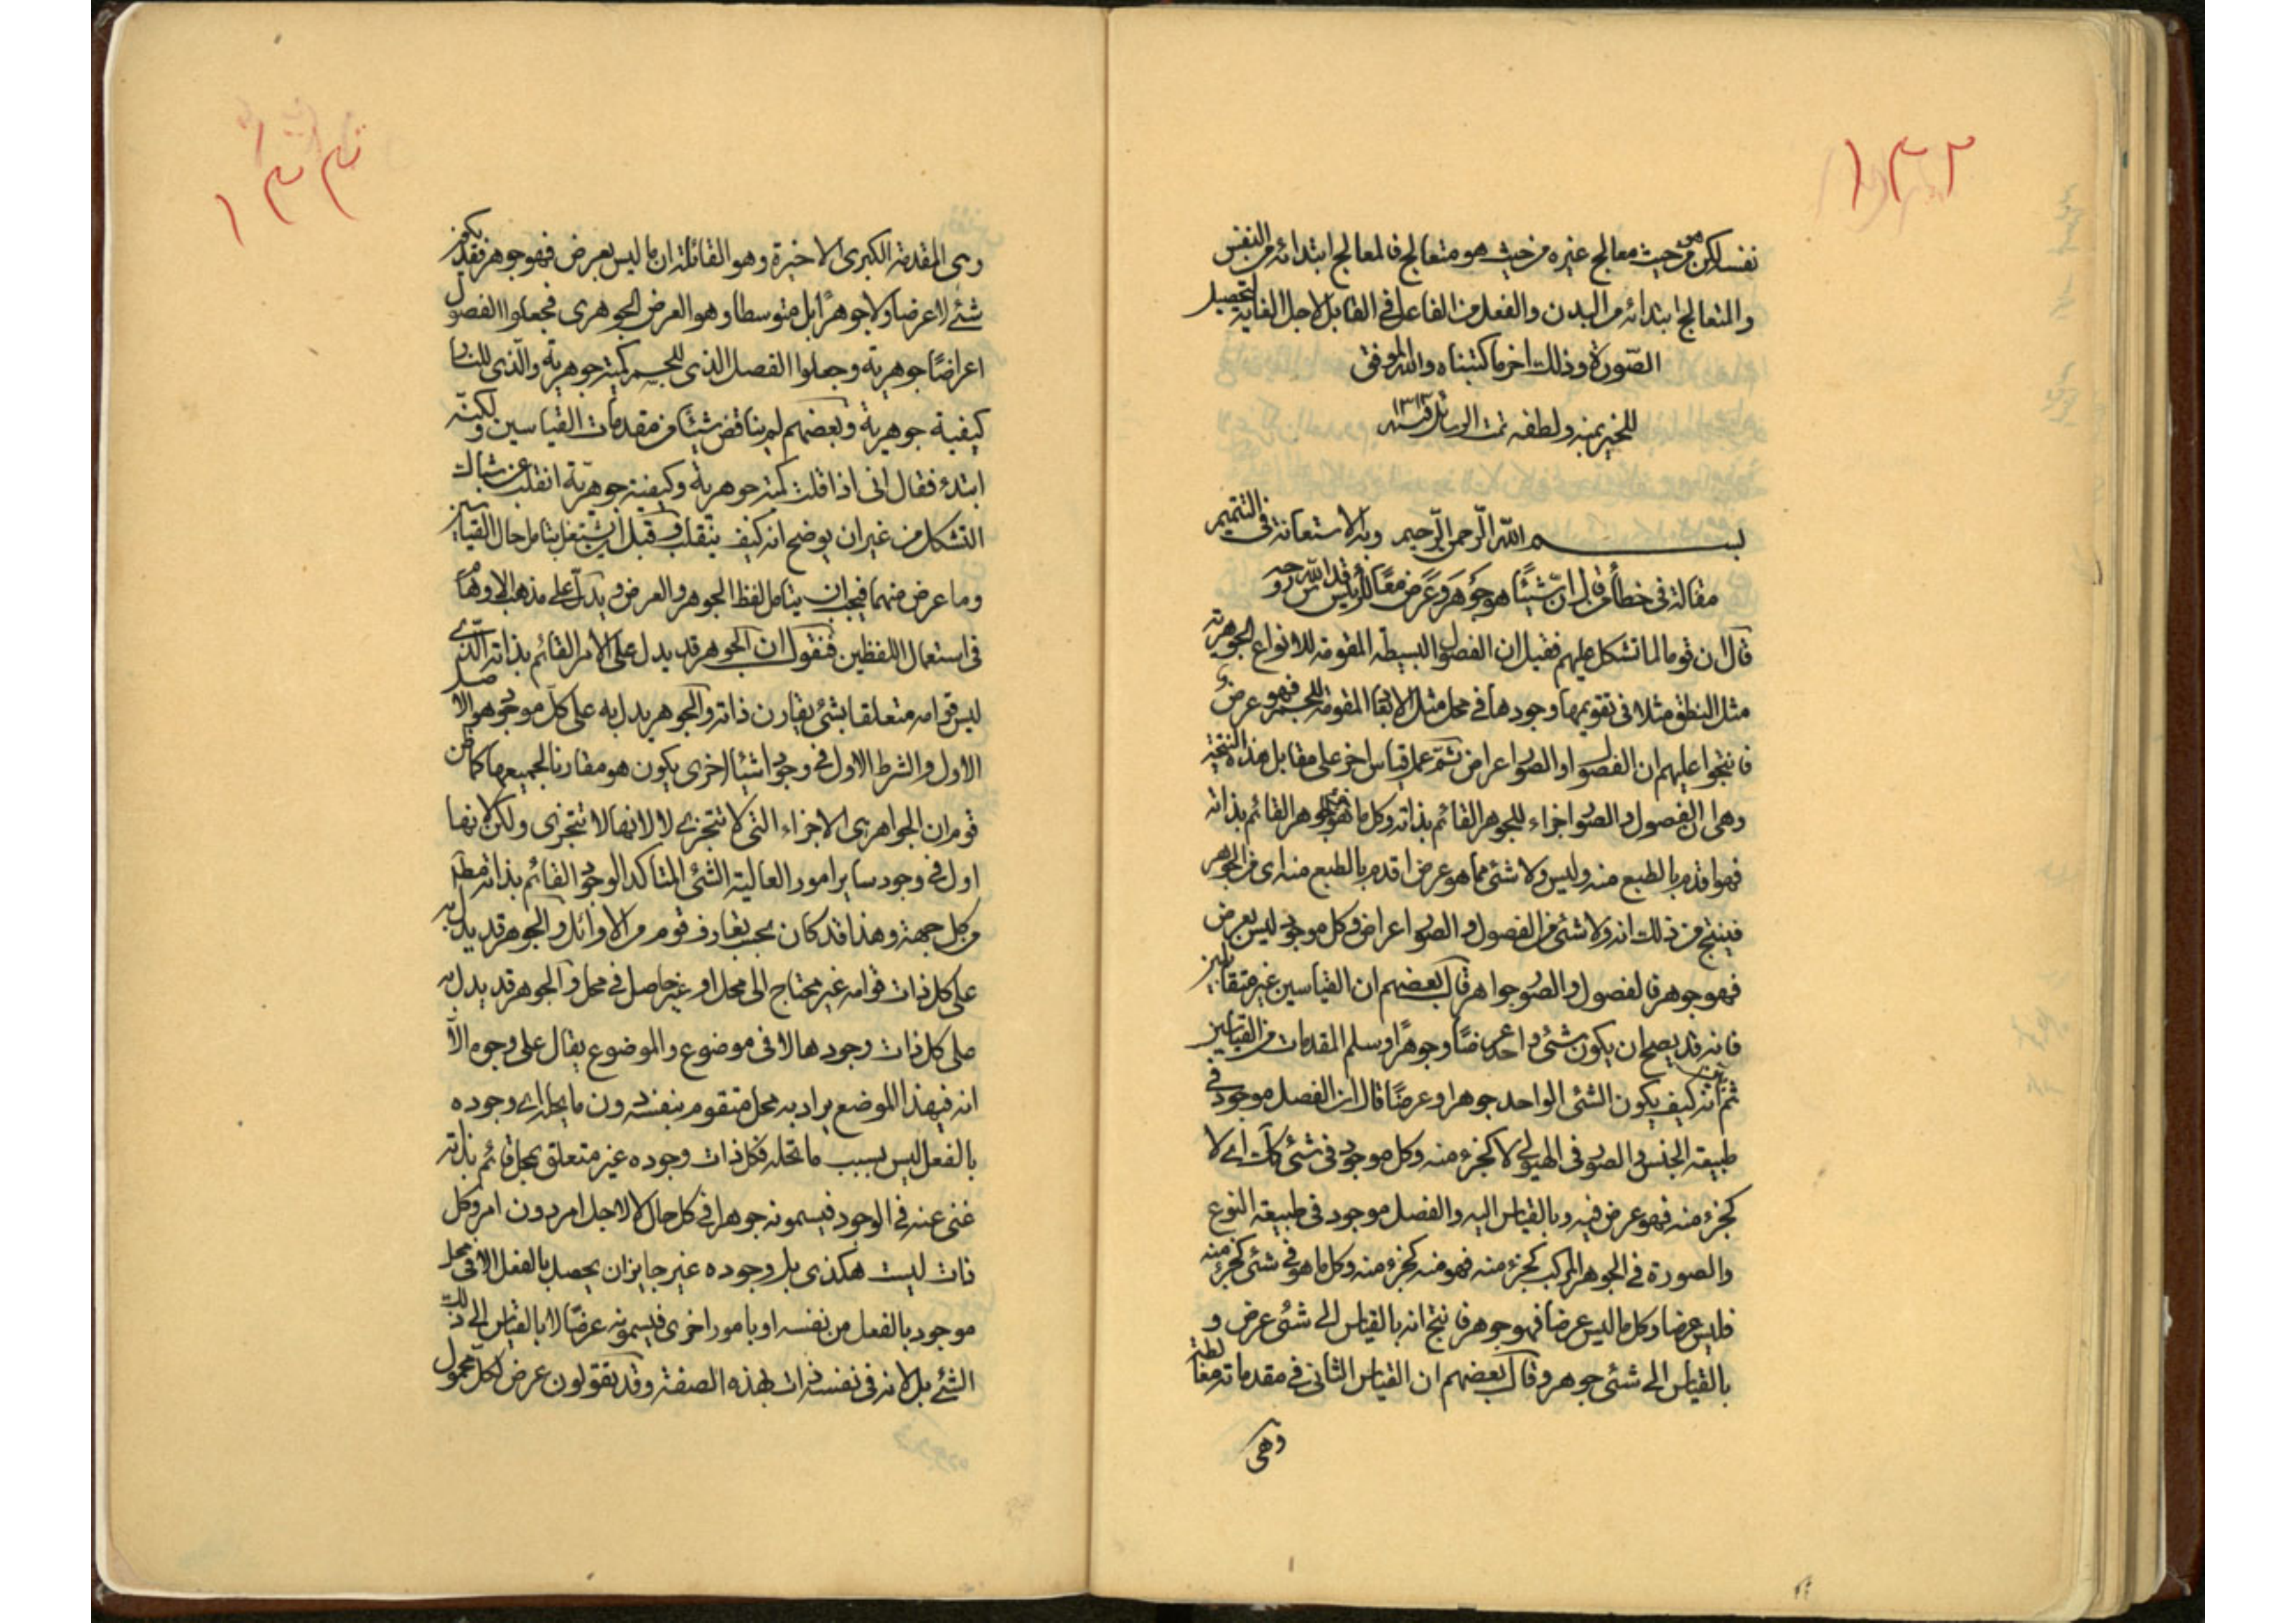 ١٣٢
نفسا لكن من حيث هو معالج غيره من حيث هو متعالج فالمعالج ابتدائه من النفس
والمتعالج ابتدائه من البدن والفعل من الفاعل فى القابل لاجل الغاية لتحصيل
الصّورة وذلك اخر ما كتبناه والله الموفق
للخير بمنه ولطفه تمت الرسائل فى سنه ١٣١٣
بسم الله الرّحمن الرّحيم وبه الاستعانة فى التتميم
مقالة فى خطأ من قال انّ شيئًا هو جَوهَر وعَرَض معًا للرئيس قدس الله روحه
قال ان قوما لما تشكل عليهم فقيل ان الفصول البسيطه المقومه للانواع الجوهرية
مثل النطق مثلا فى تقويمها وجودها فى محل مثل الابعاد المقومة للجسم فهو عرض
فانتجوا عليهم ان الفصول والصور اعراض ثمّ عمل قياس اخر على مقابل هذا النتيجة
وهى ان الفصول والصور اجزاء للجوهر القائم بذاته وكل ما هو جزء للجوهر القائم بذاته
فهو اقدم بالطبع منه وليس ولا شئ مما هو عرض اقدم بالطبع منه اى من الجوهر
فينتج من ذلك انه ولا شئ من الفصول والصور اعراض وكل موجود ليس بعرض
فهو جوهر فالفصول والصور جواهر قال بعضهم ان القياسين غير متقابلين
فانه قد يصح ان يكون شئ واحد عرضًا وجوهرًا وسلم المقدمات من القياسين
ثمّ انه كيف يكون الشئ الواحد جوهرا وعرضًا قال ان الفصل موجود فى
طبيعة الجنس والصور فى الهيولى لا كجزء منه وكل موجود فى شئ كك اى لا
كجزء منه فهو عرض فيه وبالقياس اليه والفصل موجود فى طبيعة النوع
والصورة فى الجوهر المركب كجزء منه فهو منه كجزء منه وكل ما هو فى شئ كجزء منه
فليس عرضا وكل ما ليس عرضا فهو جوهر فانتج انه بالقياس الى شئ عرض و
بالقياس الى شئ جوهر وقال بعضهم ان القياس الثانى فى مقدماته مغالطة
وهى
١٣٣
وهى المقدمة الكبرى الاخيرة وهو القائلة ان ما ليس بعرض فهو جوهر فقد يكون
شئ لا عرضا ولا جوهرًا بل متوسطا وهو العرض الجوهرى فجعلوا الفصول
اعراضًا جوهرية وجعلوا الفصل الذى للجسم كمية جوهرية والّذى للنار
كيفية جوهرية وبعضهم لم يناقض شيئًا من مقدمات القياسين ولكنّه
ابتدء فقال انى اذا قلت كمية جوهرية وكيفية جوهريّة انقلت عن شباك
التشكل من غير ان يوضح انه كيف ينقلب وقبل ان يشتغل بتامل حال القياسين
وما عرض منهما فيجب ان يتامل لفظ الجوهر والعرض ويدل على مذهب الاوهام
فى استعمال اللفظين فنقول ان الجوهر قد يدل على الامر القائم بذاته الّذى
ليس قوامه متعلقا بشئ يقارن ذاته والجوهر يدل به على كل موجود هو الاصل
الاول والشرط الاول فى وجود اشياء اخرى يكون هو مقارنا لجميعها كما ظن
قوم ان الجواهر هى الاجزاء التى لا تتجزى لا لانها لا تتجزى ولكن لانها
اول فى وجود ساير امور العالية الشئ المتاكد الوجود القائم بذاته مطلقا
من كل جهة وهذا قد كان بحسب تعارف قوم من الاوائل والجوهر قد يدل به
على كل ذات قوامه غير محتاج الى محل او غير حاصل فى محل والجوهر قد يدل به
على كل ذات وجودها لا فى موضوع والموضوع يقال على وجوه الّا
انه فى هذا الموضع يراد به محل متقوم بنفسه دون ما يحله اى وجوده
بالفعل ليس بسبب ما تحله فكل ذات وجوده غير متعلق بمحل قائم بذاته
غنى عنه فى الوجود فيسمونه جوهرا فى كل حال لا لاجل امر دون امر وكل
ذات ليست هكذى بل وجوده غير جايز ان يحصل بالفعل الا فى محل
موجود بالفعل من نفسه او بامور اخرى فيسمونه عرضًا لا بالقياس الى ذلك
الشئ بل لانه فى نفسه ذات لهذه الصفة وقد يقولون عرض لكل محمول